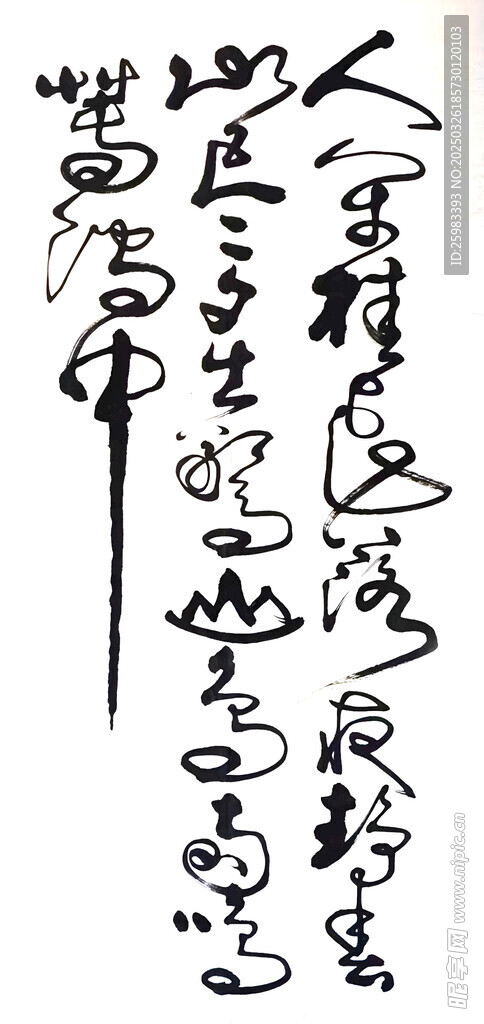 人閒桂花落夜靜春
山空月出驚山鳥時鳴
春澗中
ID:25983393 NO:20250326185730120103
昵享网 www.nipic.cn